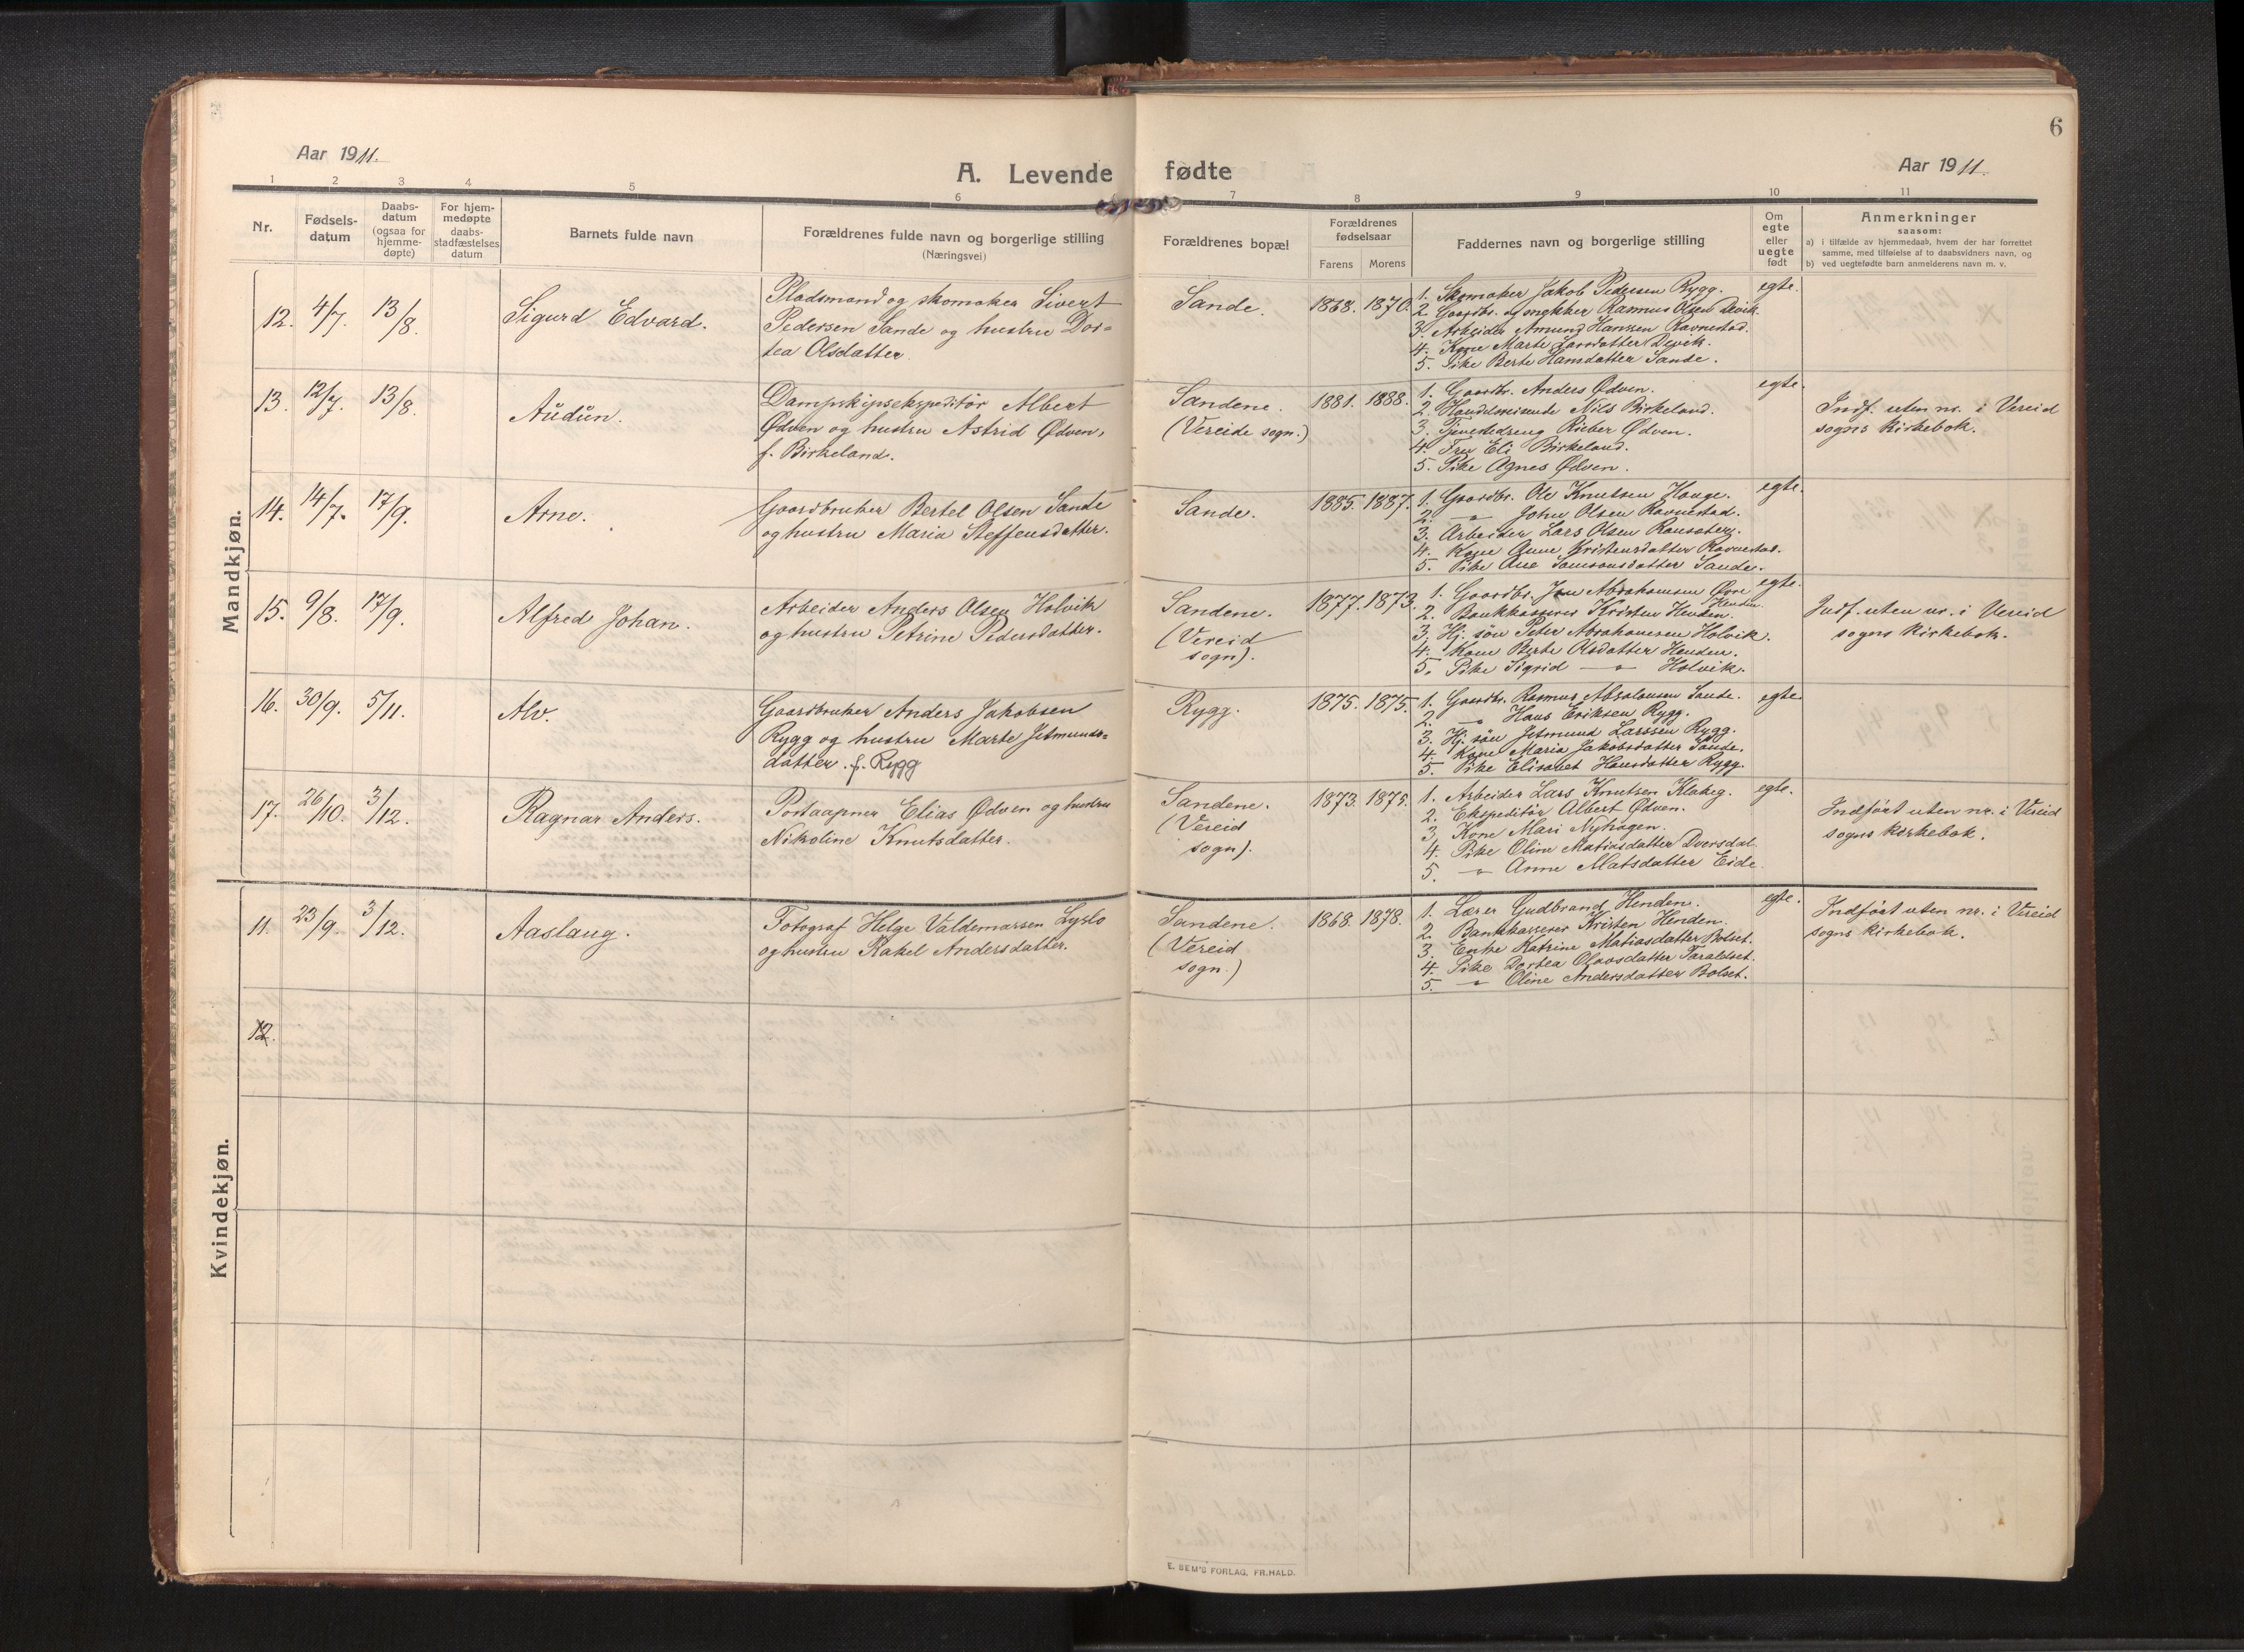 6
Aar 1911.
A. Levende fødte
Aar 1911.
1 2 3 4 5 6 7 8 9 10 11
Nr.
Fødsels-
datum
Daabs-
datum
(ogsaa for
hjemme-
døpte)
For hjem-
medøpte
daabs-
stadfæstelses
datum
Barnets fulde navn
Forældrenes fulde navn og borgerlige stilling
(Næringsvei)
Forældrenes bopæl
Forældrenes
fødselsaar
Farens Morens
Faddernes navn og borgerlige stilling
Om
egte
eller
uegte
født
Anmerkninger
saasom:
a) i tilfælde av hjemmedaab, hvem der har forrettet
samme, med tilføielse af to daabsvidners navn, og
b) ved uegtefødte barn anmelderens navn m. v.
Mandkjøn.
12. 4/7. 13/8. Sigurd Edvard.
Pladsmand og skomaker Sivert
Pedersen Sande og hustru Dor=
tea Olsdatter.
Sande. 1868. 1870.
1. Skomaker Jakob Pedersen Rygg.
2. Gaardbr. og Rasmus Olsen Devik.
3. Arbeider Amund Hanssen Ravnestad.
4. Kone Marte Larsdatter Devik.
5. Pike Berte Hansdatter Sande.
egte.
13. 12/7. 13/8. Audun.
Dampskipsekspeditör Albert
Ødven og hustru Astrid Ødven,
f. Birkeland.
Sandene.
(Vereide sogn.)
1881. 1888.
1. Gaardbr. Anders Ødven.
2. Handelsreisende Nils Birkeland.
3. Tjenestedreng Rieber Ødven.
4. Fru Eli Birkeland.
5. Pike Agnes Ødven.
egte.
Indf. uten nr. i Vereid
sogns kirkebok.
14. 14/7. 17/9. Arne.
Gaardbruker Bertel Olsen Sande
og hustru Maria Steffensdatter.
Sande. 1885. 1887.
1. Gaardbr. Ole Knutsen Hauge.
2. — " — John Olsen Ravnestad.
3. Arbeider Lars Olsen
4. Kone Anne Kristensdatter Ravnestad.
5. Pike Ane Samsonsdatter Sande.
egte.
15. 9/8. 17/9. Alfred Johan.
Arbeider Anders Olsen Holvik
og hustru Petrine Pedersdatter.
Sandene.
(Vereid
sogn).
1877. 1873.
1. Gaardbr. Jon Abrahamsen Øvre
Henden.
2. Bankkasserer Kristen Henden.
3. Hj. søn Peter Abrahamsen Holvik.
4. Kone Berte Olsdatter Henden.
5. Pike Sigrid — " — Holvik.
egte.
Indf. uten nr. i Vereid
sogns kirkebok.
16. 30/9. 5/11. Alv.
Gaardbruker Anders Jakobsen
Rygg og hustru Marte Jetmunds=
datter. f. Rygg
Rygg. 1875. 1875.
1. Gaardbr. Rasmus Absalonsen Sande.
2. — " — Hans Eriksen Rygg.
3. Hj. søn Jetmund Larssen Rygg.
4. Kone Maria Jakobsdatter Sande.
5. Pike Elisabet Hansdatter Rygg.
egte.
17. 26/10. 3/12. Ragnar Anders.
Postaapner Elias Ødven og hustru
Nikoline Knutsdatter.
Sandene.
(Vereid
sogn).
1873. 1875.
1. Arbeider Lars Knutsen Klakeg.
2. Ekspeditör Albert Ødven.
3. Kone Mari Nyhagen.
4. Pike Oline Matiasdatter Dvergsdal.
5. — " — Anne Matsdatter Eide.
egte.
Indført uten nr. i Vereid
sogns kirkebok.
Kvindekjøn.
11. 23/9. 3/12. Aaslaug.
Fotograf Helge Valdemarssen Lyslo
og hustru Rakel Andersdatter.
Sandene.
(Vereid
sogn.)
1868. 1878.
1. Lærer Gudbrand Henden.
2. Bankkasserer Kristen Henden.
3. Enke Katrine Matiasdatter Bolset.
4. Pike Dortea Olavsdatter Taraldset.
5. — " — Oline Andersdatter Bolset.
egte.
Indført uten nr. i Vereid
sogns kirkebok.
12.
E. SEM'S FORLAG, FR.HALD.